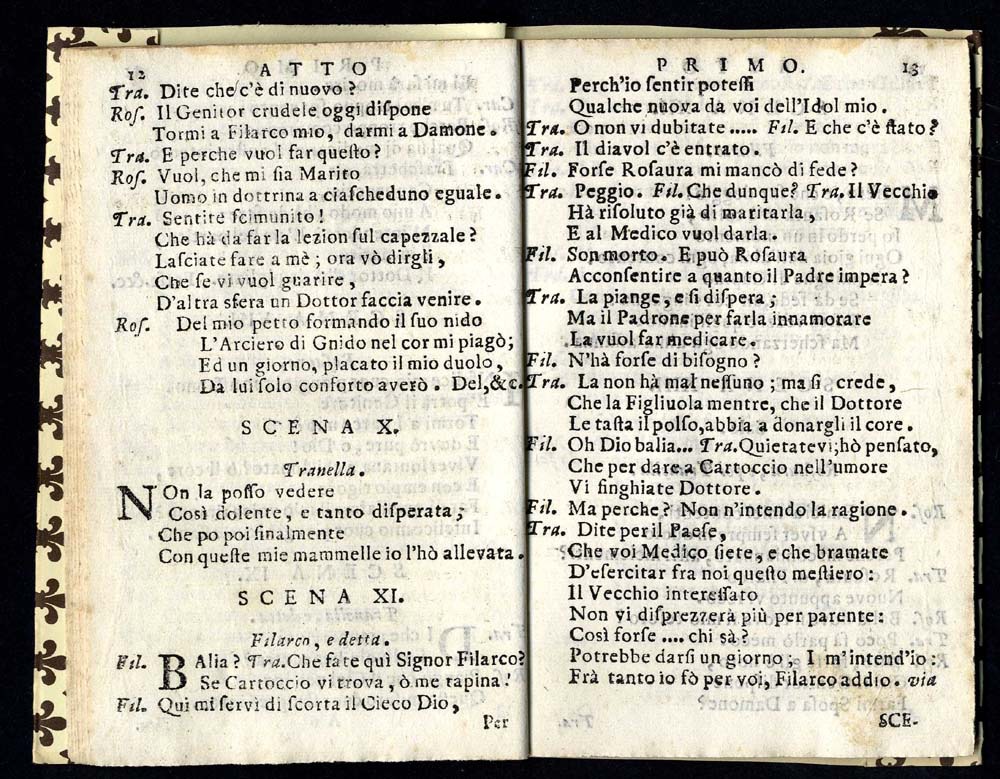 12 ATTO
Tra. Dite che c'è di nuovo?
Roſ. Il Genitor crudele oggi diſpone
Tormi a Filarco mio, darmi a Damone.
Tra. E perche vuol far queſto?
Roſ. Vuol, che mi ſia Marito
Uomo in dottrina a ciaſcheduno eguale.
Tra. Sentite ſcimunito!
Che hà da far la lezion ſul capezzale?
Laſciate fare a mè; ora vò dirgli,
Che ſe vi vuol guarire,
D'altra sfera un Dottor faccia venire.
Roſ. Del mio petto formando il ſuo nido
L'Arciero di Gnido nel cor mi piagò;
Ed un giorno, placato il mio duolo,
Da lui ſolo conforto averò. Del, &c.
SCENA X.
Tranella.
NOn la poſſo vedere
Così dolente, e tanto diſperata;
Che po poi finalmente
Con queſte mie mammelle io l'hò allevata.
SCENA XI.
Filarco, e detta.
Fil. BAlia? Tra. Che fate quì Signor Filarco?
Se Cartoccio vi trova, ò me tapina!
Fil. Qui mi ſervì di ſcorta il Cieco Dio,
Per
PRIMO. 13
Perch'io ſentir poteſſi
Qualche nuova da voi dell'Idol mio.
Tra. O non vi dubitate ..... Fil. E che c'è ſtato?
Tra. Il diavol c'è entrato.
Fil. Forſe Roſaura mi mancò di fede?
Tra. Peggio. Fil. Che dunque? Tra. Il Vecchio
Hà riſoluto già di maritarla,
E al Medico vuol darla.
Fil. Son morto. E può Roſaura
Acconſentire a quanto il Padre impera?
Tra. La piange, e ſi diſpera;
Ma il Padrone per farla innamorare
La vuol far medicare.
Fil. N'hà forſe di biſogno?
Tra. La non hà mal neſſuno; ma ſi crede,
Che la Figliuola mentre, che il Dottore
Le taſta il polſo, abbia a donargli il core.
Fil. Oh Dio balia... Tra. Quietatevi; hò penſato,
Che per dare a Cartoccio nell'umore
Vi finghiate Dottore.
Fil. Ma perche? Non n'intendo la ragione.
Tra. Dite per il Paeſe,
Che voi Medico ſiete, e che bramate
D'eſercitar fra noi queſto meſtiero:
Il Vecchio intereſſato
Non vi diſprezzerà più per parente:
Così forſe .... chi sà?
Potrebbe darſi un giorno; I m'intend'io:
Frà tanto io fò per voi, Filarco addio. via
SCE-